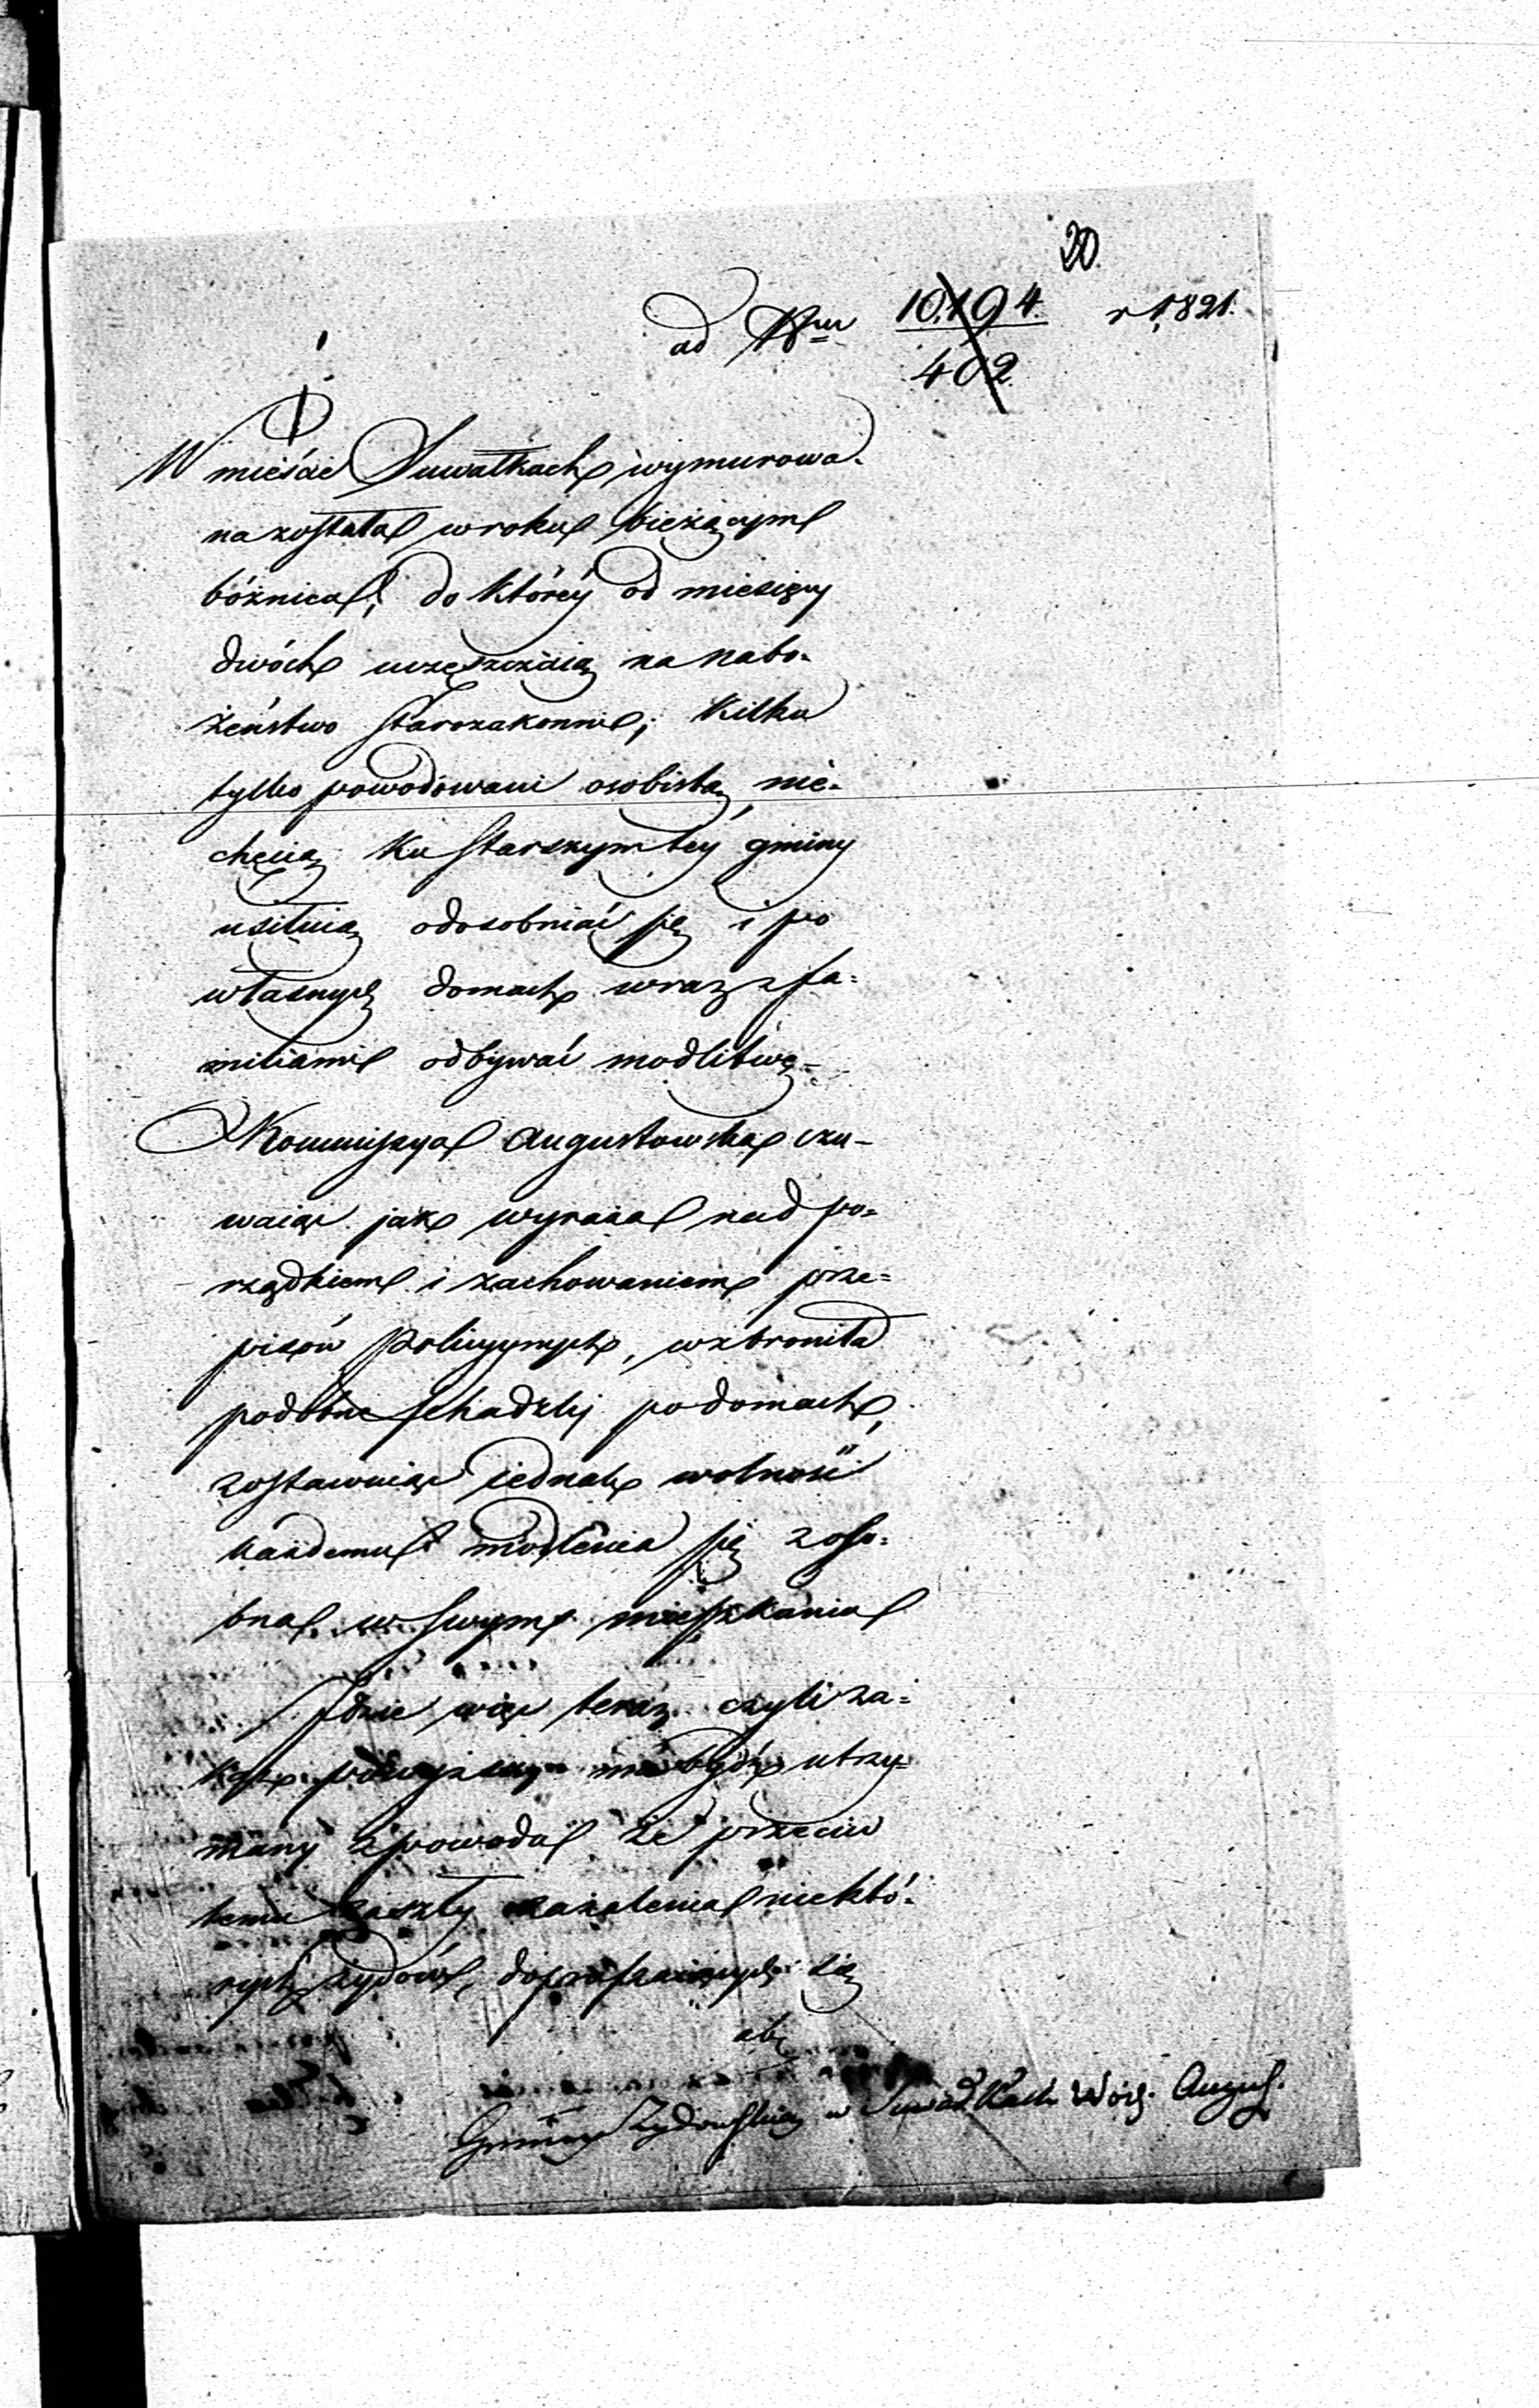 20.
ad Nrm 10,194. r 1821.
402
W mieście Suwałkach wymurowa-
na została w roku bieżącym
bóżnica, do któréy od miesięcy
dwóch uczęszczaią na nabo-
żeństwo Starozakonni; kilku
tylko powodowani osobistą nie-
chęcią ku Starszym téy gminy
usiłuią odosobniać się i po
własnych domach wraz z fa-
miliami odbywać modlitwę-
Kommissya Augustowska czu-
waiąc jak wyraża nad po-
rządkiem i zachowaniem prze-
pisów Policyynych, wzbroniła
podobne schadzki po domach,
zostawuiąc iednak wolność
każdemu modlenia się zoso-
bna w swym mieszkaniu
Idzie więc teraz czyli za-
kaz powyższy ma bydź utrzy-
many z powodu że przeciw
temu zaszły zażalenia niektó-
rych żydów, dopraszaiących się
aby
Gminy Żydowskiey w Suwałkach Wój. August.